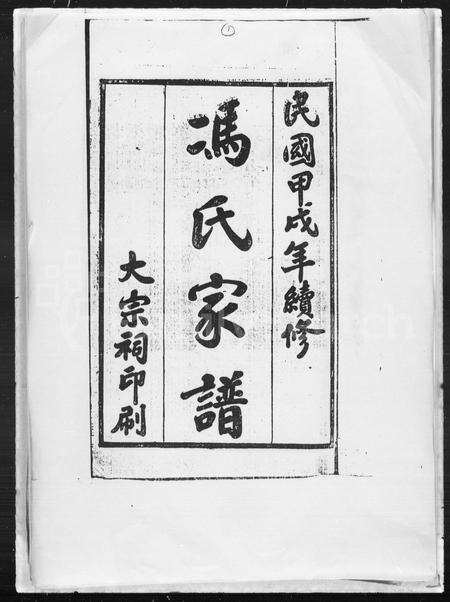 民國甲戌年續修
馮氏家譜
大宗祠印刷
1